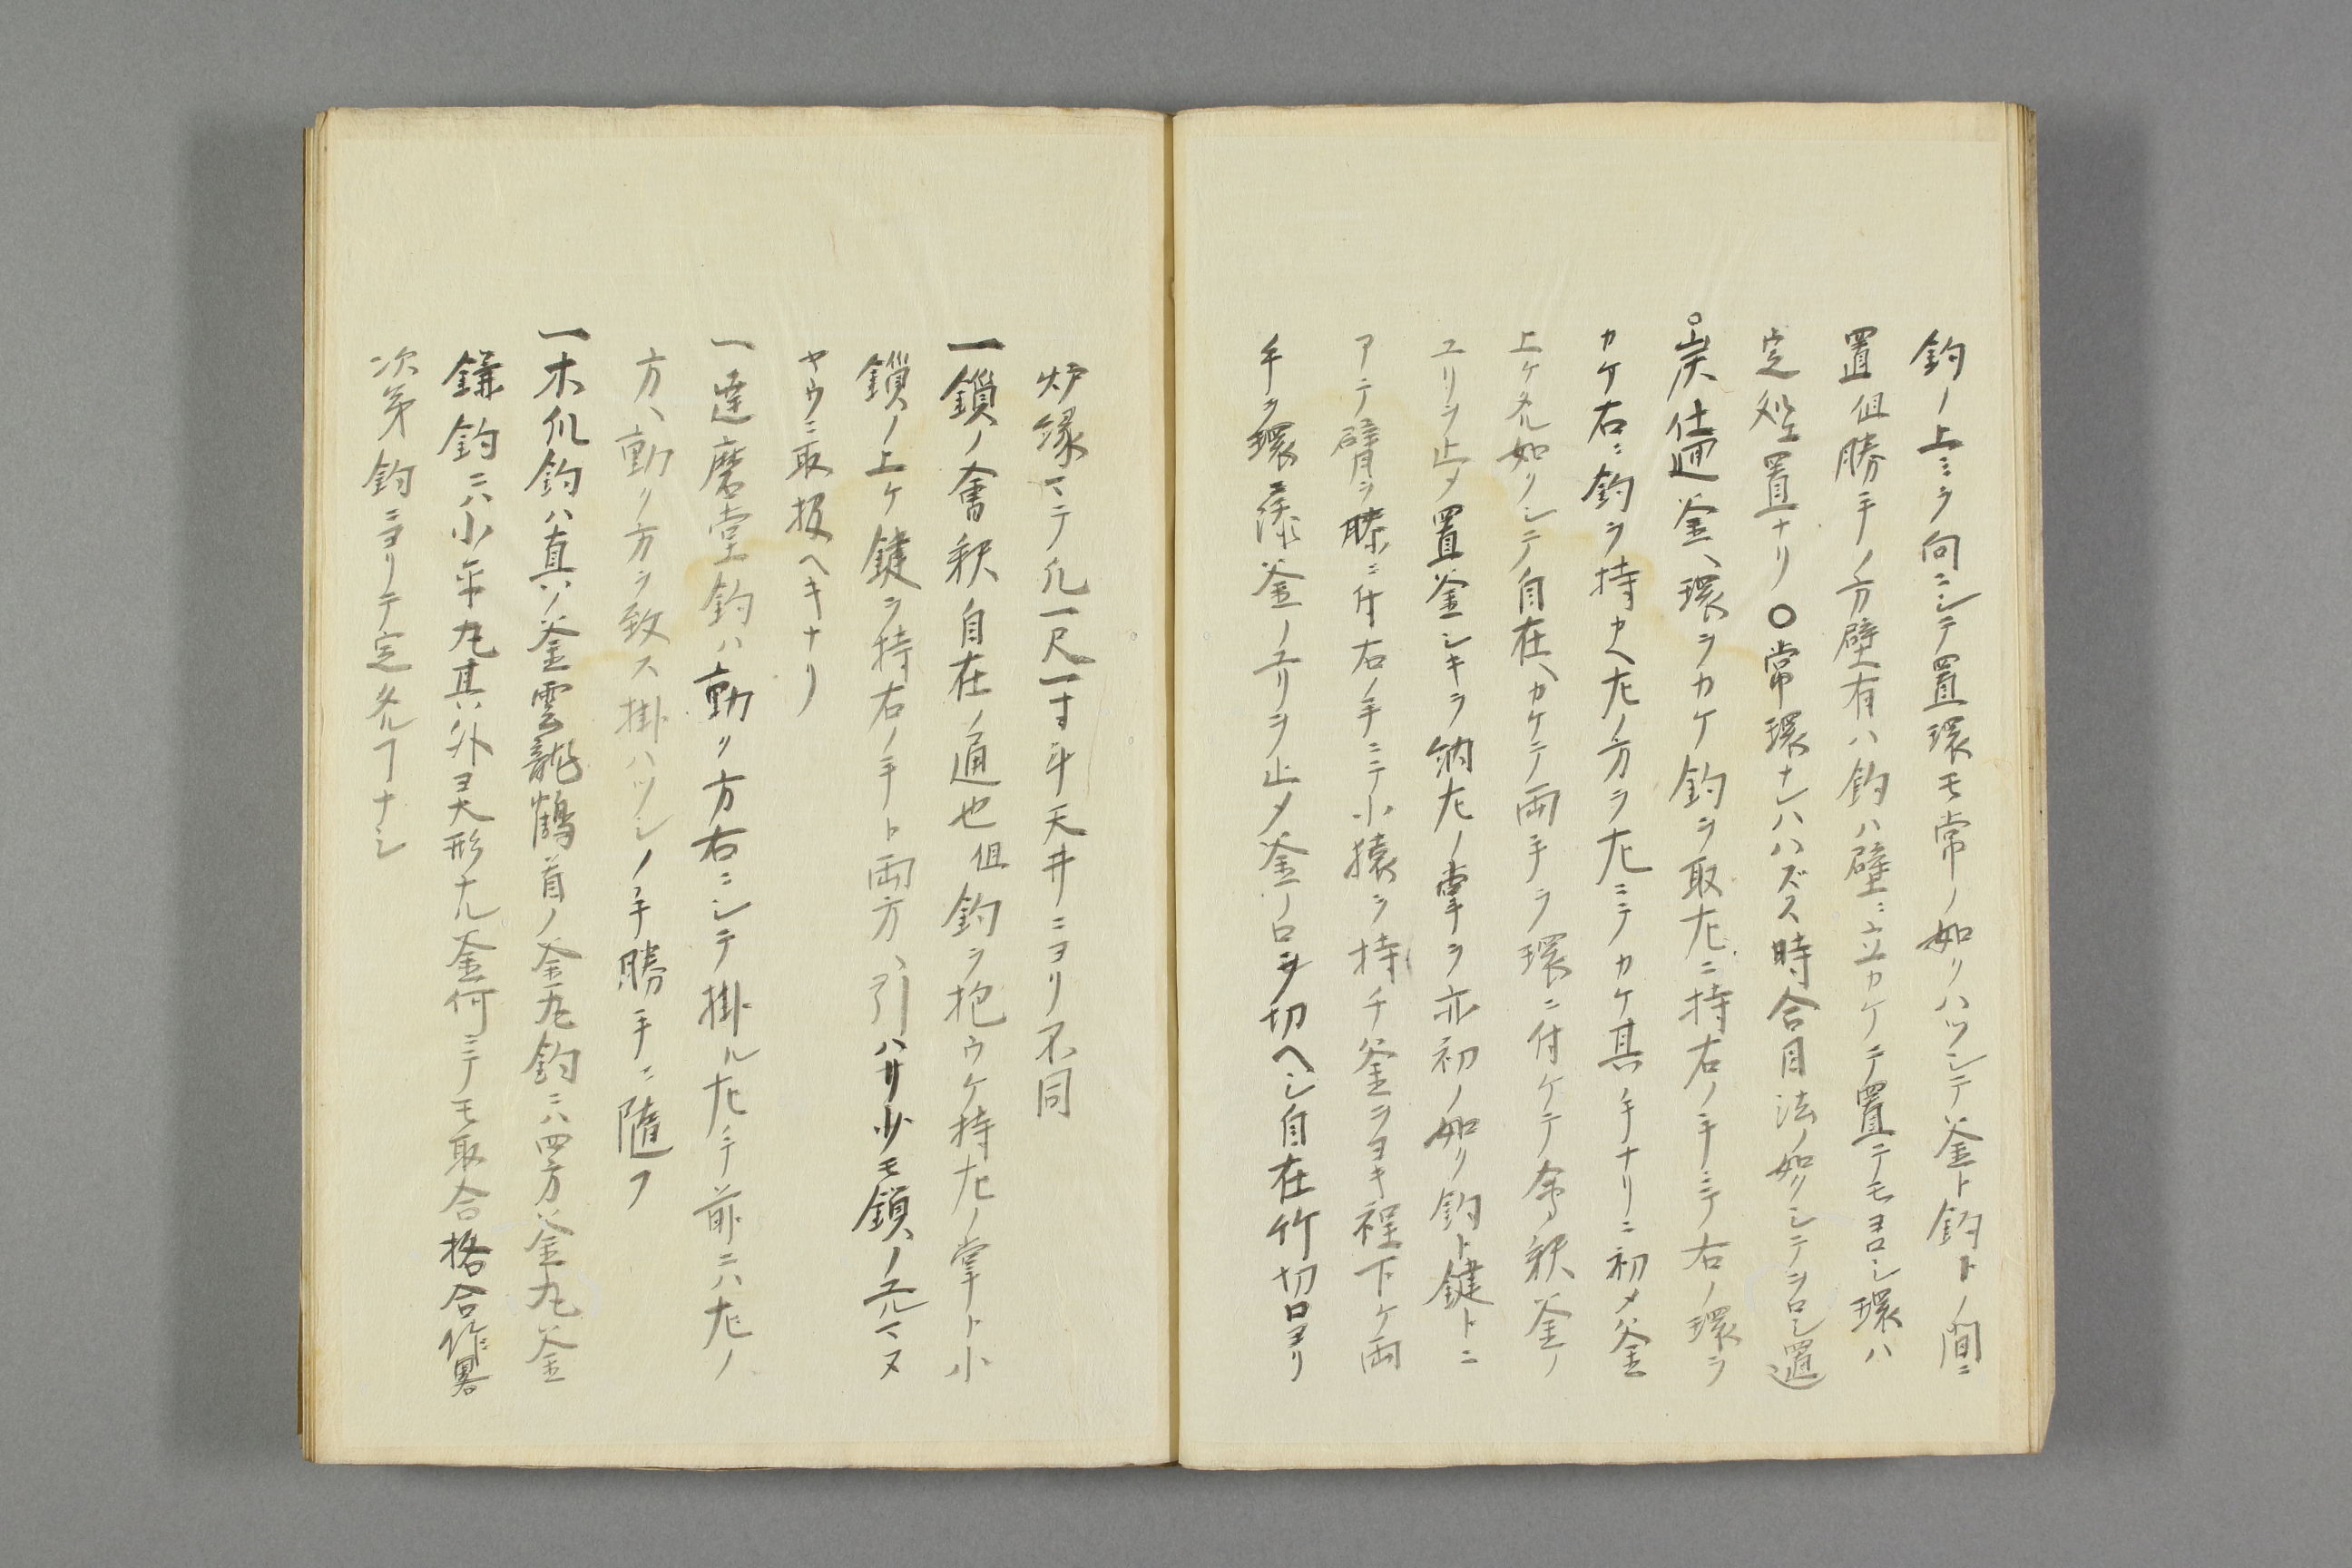 釣ノ上ミヲ向ニシテ置環モ常ノ如リハツシテ釜ト釣トノ間ニ
置但勝手ノ方壁有ハ釣ハ壁ニ立カケテ置テモヨロシ環ハ
定処置ナリ〇常環ナレハハズス時合目法ノ如リシテヲロシ置
〇炭仕廻釜ヘ環ヲカケ釣ヲ取左ニ持右ノ手ニテ右ノ環ヲ
カケ右ニ釣ヲ持カヘ左ノ方ヲ左ニテカケ其手ナリニ初メ釜
上ケタル如リシテ自在ヘカケテ両手ヲ環ニ付ケテ奮釈釜ノ
ユリヲ止メ置釜シキヲ納左ノ掌ヲ亦初ノ如リ釣ト鍵トニ
アテ臂ヲ膝ニ付右ノ手ニテ小猿ヲ持チ釜ヲヨキ程下ケ両
手ヲ環ニ添釜ノユリヲ止メ釜ノ口ヲ切ヘシ自在竹切口ヨリ
炉縁マテ凡一尺一寸斗天井ニヨリ不同
一鎖ノ奮釈自在ノ通也但釣ヲ抱ウケ持左ノ掌ト小
鎖ノ上ケ鍵ヲ持右ノ手ト両方ヘ引ハリ少モ鎖ノユルマヌ
ヤウニ取扱ヘキナリ
一達磨堂釣ハ動リ方右ニシテ掛ル左手前ニハ左ノ
方ヘ動リ方ヲ致ス掛ハツシノ手勝手ニ随フ
一木爪釣ハ真ノ釜雲龍鶴首ノ釜丸釣ニハ四方釜丸釜
鎌釣ニハ小平丸其外ヨ大形ナル釜何ニテモ取合格合作畧
次第釣ニヨリテ定タルヿナシ